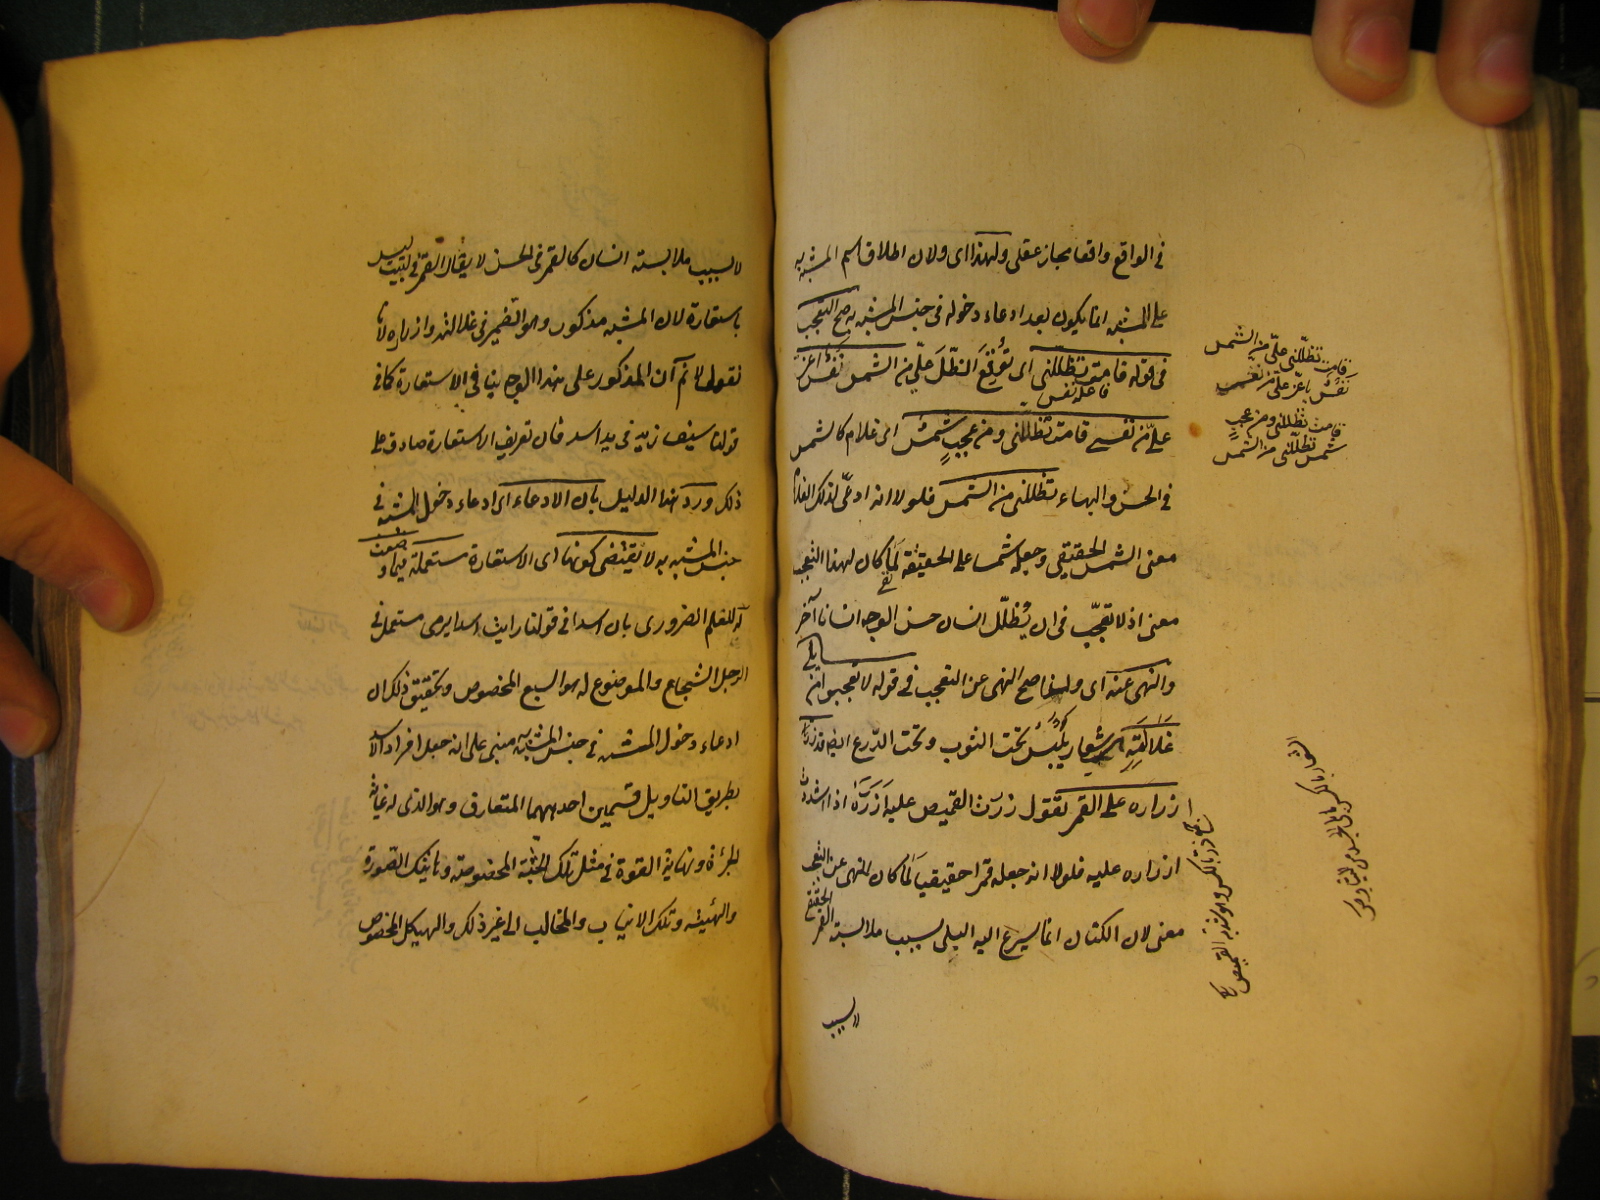 في الواقع واقعا مجاز عقلي ولهذا اى ولان اطلاق اسم المشبه به
على المشبه انما يكون بعد ادعاء دخوله في جنس المشبه به صح التعجب
في قوله قامت تظللني اى توقع الظل علي من الشمس نفس اعز
فاعله نفس
علي من نفسي قامت تظللني ومن عجب شمس اى غلام كالشمس
في الحسن والبهاء تظللني من الشمس فلولا انه ادعى لذلك الغلام
معنى الشمس الحقيقي وجعله شمسا على الحقيقة لما كان لهذا التعجب
معنى اذ لا تعجب في ان يظلل انسان حسن الوجه انسانا آخر
والنهى عنه اى ولهذا صح النهى عن التعجب في قوله لا تعجبوا من
بلى
غلالته شعار يلبس تحت الثوب وتحت الدرع ايضا قد زر
ازراره على القمر تقول زررت القميص عليه ازره اذا شددت
ازراره عليه فلولا انه جعله قمرا حقيقيا لما كان للنهى عن التعجب
معنى لان الكتان انما يسرع اليه البلى بسبب ملابسة القمر
الحقيقي
لا بسبب
قامت تظللني علي من الشمس
نفس باعز علي من نفسي
قامت تظللني ومن عجب
شمس تظللني من الشمس
لا بسبب ملابسة انسان كالقمر في الحسن لا يقال القمر في البيت ليس
باستعارة لان المشبه مذكور وهو الضمير في غلالته وازراره لانا
نقول لا نم ان المذكور على هذا الوجه ينافي الاستعارة كما في
قولنا سيف زيد في يد اسد فان تعريف الاستعارة صادق على
ذلك ورد هذا الدليل بان الادعاء اى ادعاء دخول المشبه في
جنس المشبه به لا يقتضى كونها اى الاستعارة مستعملة فيما وضعت
له للعلم الضرورى بان اسدا في قولنا رايت اسدا يرمى مستعمل في
الرجل الشجاع والموضوع له هو السبع المخصوص وتحقيق ذلك ان
ادعاء دخول المشبه في جنس المشبه به مبنى على انه جعل افراد الاسد
بطريق التاويل قسمين احدهما المتعارف وهو الذى له غاية
الجرأة ونهاية القوة في مثل تلك الجثة المخصوصة وهاتيك الصورة
والهيئة وتلك الانياب والمخالب الى غير ذلك والهيكل المخصوص